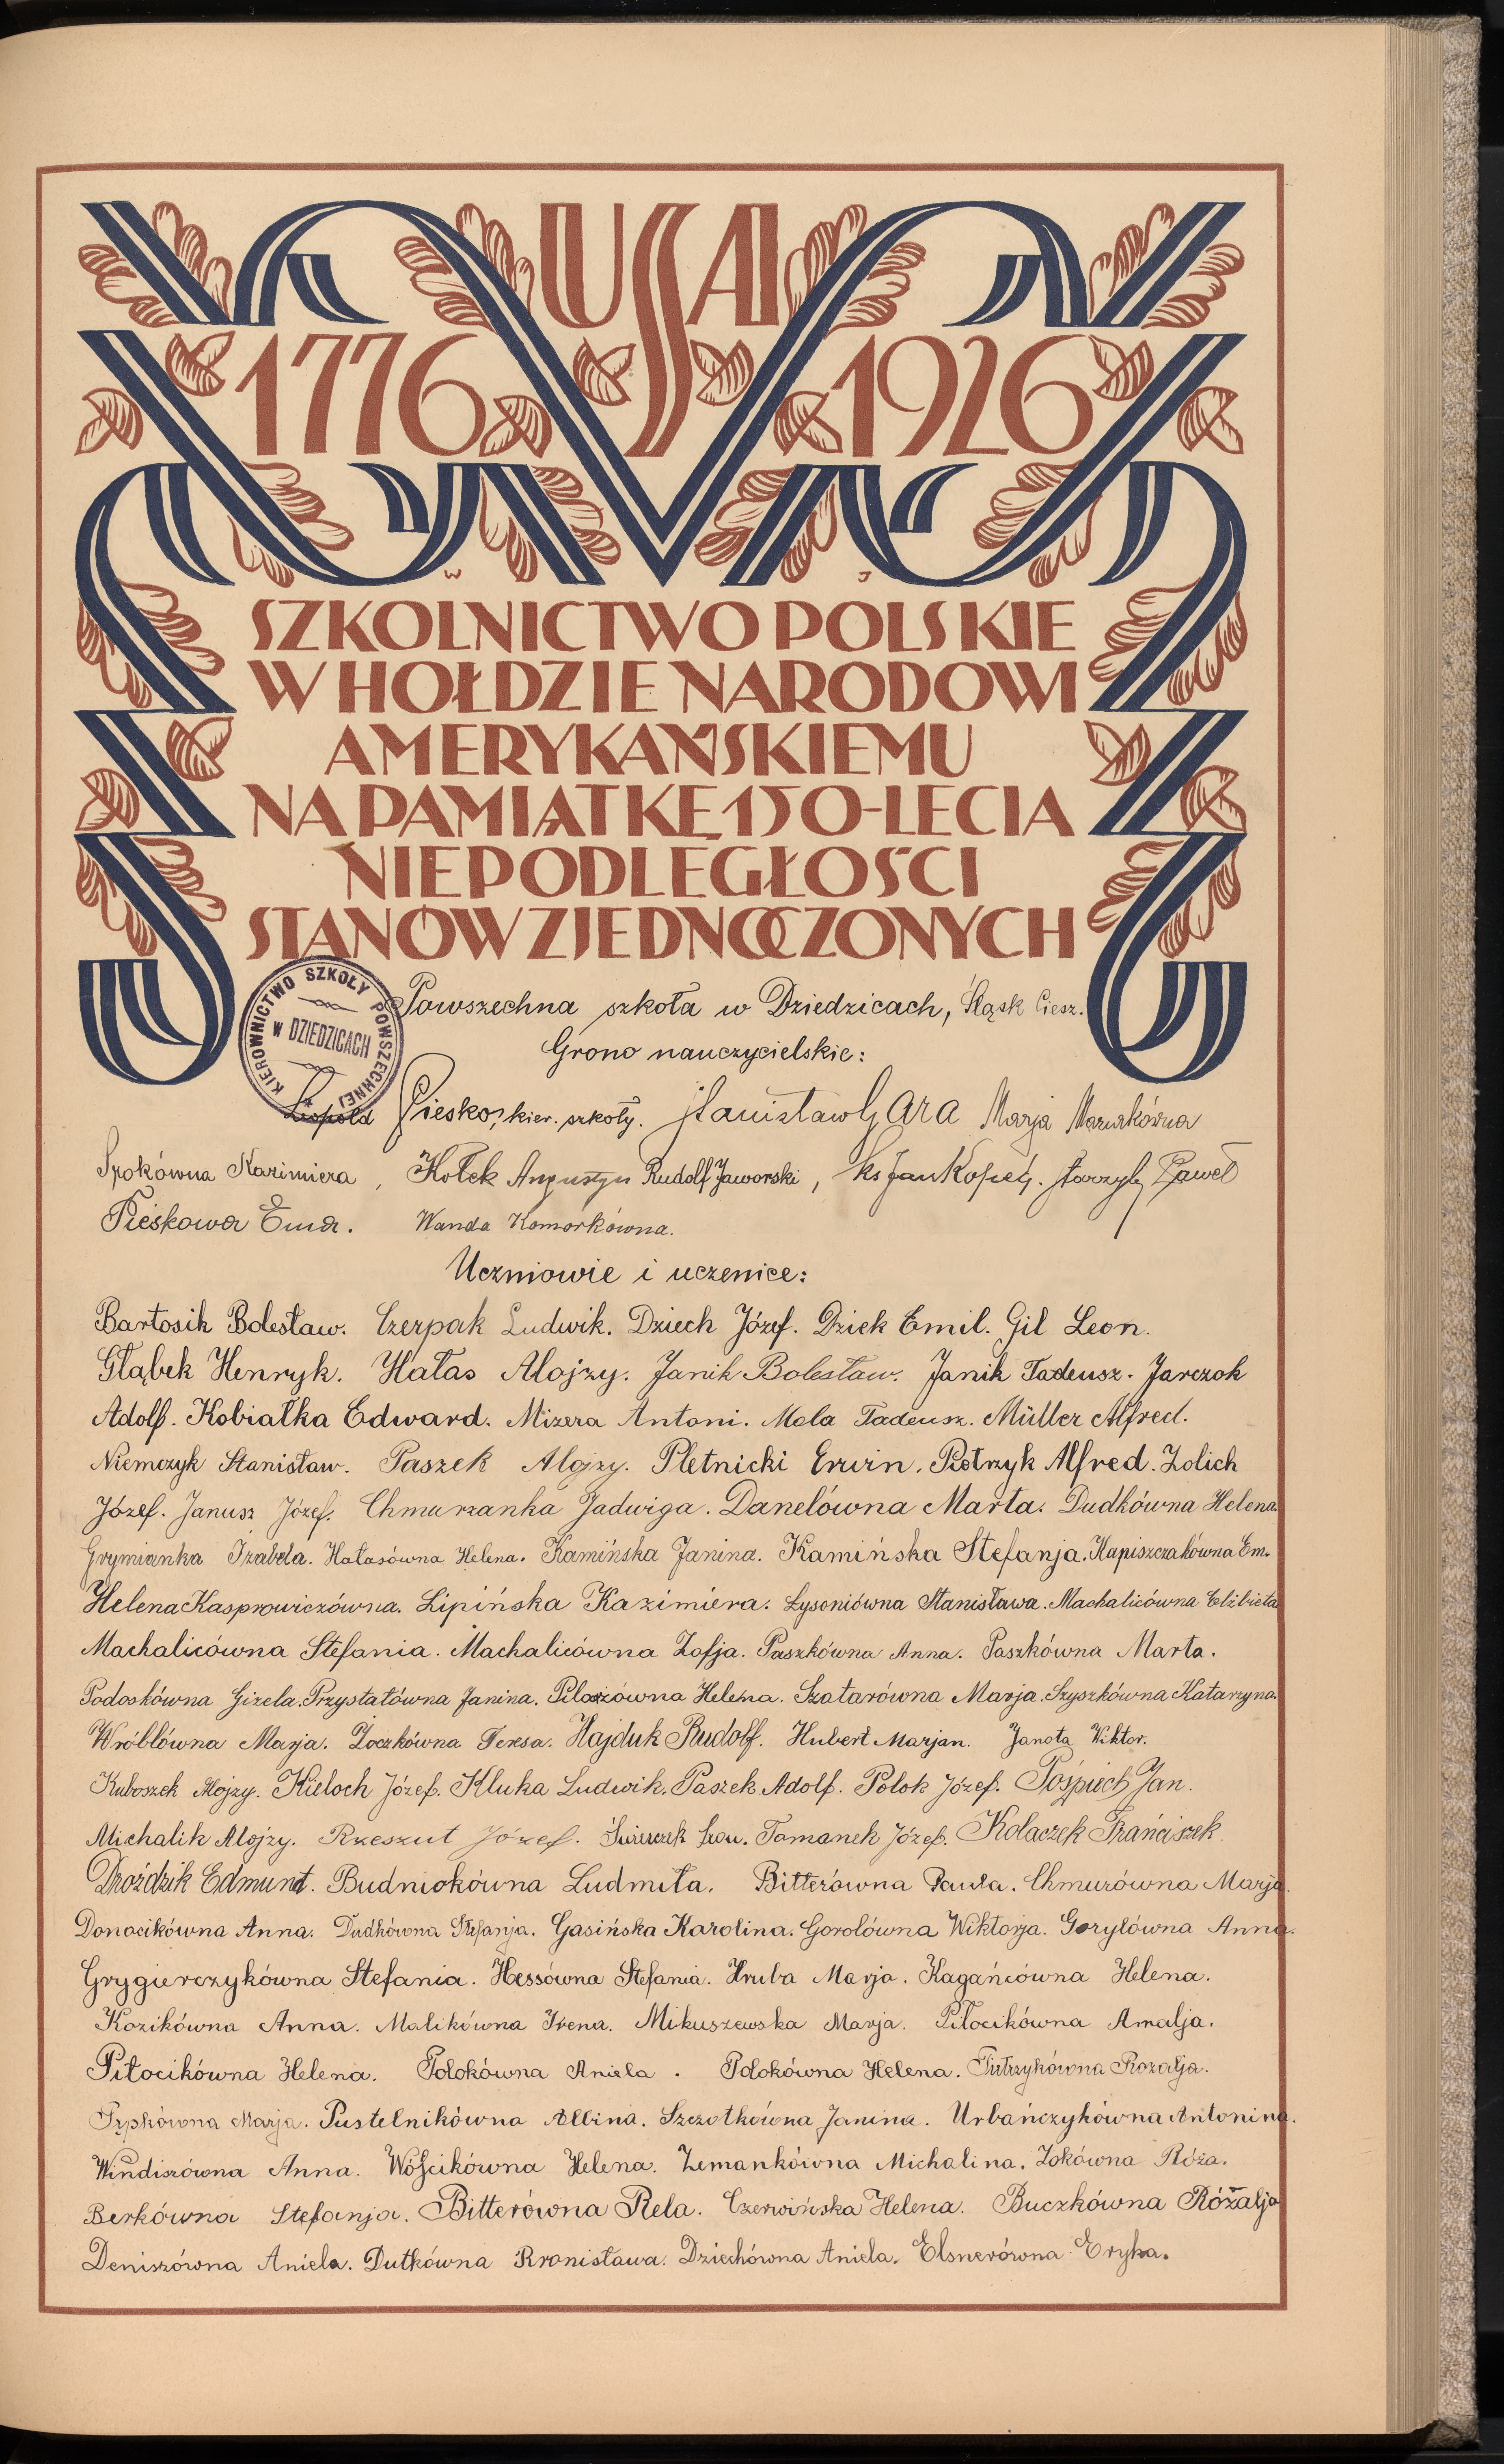 USA
1776 1926
W J
SZKOLNICTWO POLSKIE
W HOŁDZIE NARODOWI
AMERYKAŃSKIEMU
NA PAMIĄTKĘ 150-LECIA
NIEPODLEGŁOŚCI
STANÓW ZJEDNOCZONYCH
KIEROWNICTWO SZKOŁY POWSZECHNEJ
W DZIEDZICACH
Powszechna szkoła w Dziedzicach, Śląsk Ciesz.
Grono nauczycielskie:
Leopold Piesko, kier. szkoły. Stanisław Gara Marja Mazurkówna
Srokówna Kazimiera, Kołek Augustyn Rudolf Jaworski, Ks Jan Kopeć. Paweł
Pieskowa Ema. Wanda Komorkówna.
Uczniowie i uczenice:
Bartosik Bolesław. Czerpak Ludwik. Dziech Józef. Dziek Emil. Gil Leon.
Głąbek Henryk. Hałas Alojzy. Janik Bolesław. Janik Tadeusz. Jarczok
Adolf. Kobiałka Edward. Mizera Antoni. Mola Tadeusz. Müller Alfred.
Niemczyk Stanisław. Paszek Alojzy. Pletnicki Erwin. Pietrzyk Alfred. Zolich
Józef. Janusz Józef. Chmurzanka Jadwiga. Danelówna Marta. Dudkówna Helena.
Grymianka Izabela. Hałasówna Helena. Kamińska Janina. Kamińska Stefanja. Kapiszczakówna Em.
Helena Kasprowiczówna. Lipińska Kazimiera. Łysoniówna Stanisława. Machalicówna Elżbieta
Machalicówna Stefania. Machalicówna Zofja. Paszkówna Anna. Paszkówna Marta.
Podoskówna Gizela. Przystałówna Janina. Pilarzówna Helena. Szatarówna Marja. Szyszkówna Katarzyna.
Wróblówna Marja. Żoczkówna Teresa. Hajduk Rudolf. Hubert Marjan. Janota Wiktor.
Kuboszek Alojzy. Kieloch Józef. Kluka Ludwik. Paszek Adolf. Polok Józef. Pośpiech Jan.
Michalik Alojzy. Rzeszut Józef. Świerczek Fran. Tomanek Józef. Kolaczek Franciszek.
Droździk Edmund. Budniokówna Ludmiła. Bitterówna Paula. Chmurówna Marja.
Donocikówna Anna. Dudkówna Stefanja. Gasińska Karolina. Gorolówna Wiktorja. Goryłówna Anna.
Grygierczykówna Stefania. Hessówna Stefania. Hruba Marja. Kagańcówna Helena.
Kozikówna Anna. Malikówna Irena. Mikuszewska Marja. Piłocikówna Amalja.
Piłocikówna Helena. Polokówna Aniela. Polokówna Helena. Pietrzykówna Rozalja.
Pępkówna Marja. Pustelnikówna Albina. Szczotkówna Janina. Urbańczykówna Antonina.
Windiszówna Anna. Wójcikówna Helena. Zemankówna Michalina. Żokówna Róża.
Berkówna Stefanja. Bitterówna Rela. Czerwińska Helena. Buczkówna Rózalja
Deniszówna Aniela. Dutkówna Bronisława. Dziechówna Aniela. Elsnerówna Eryka.